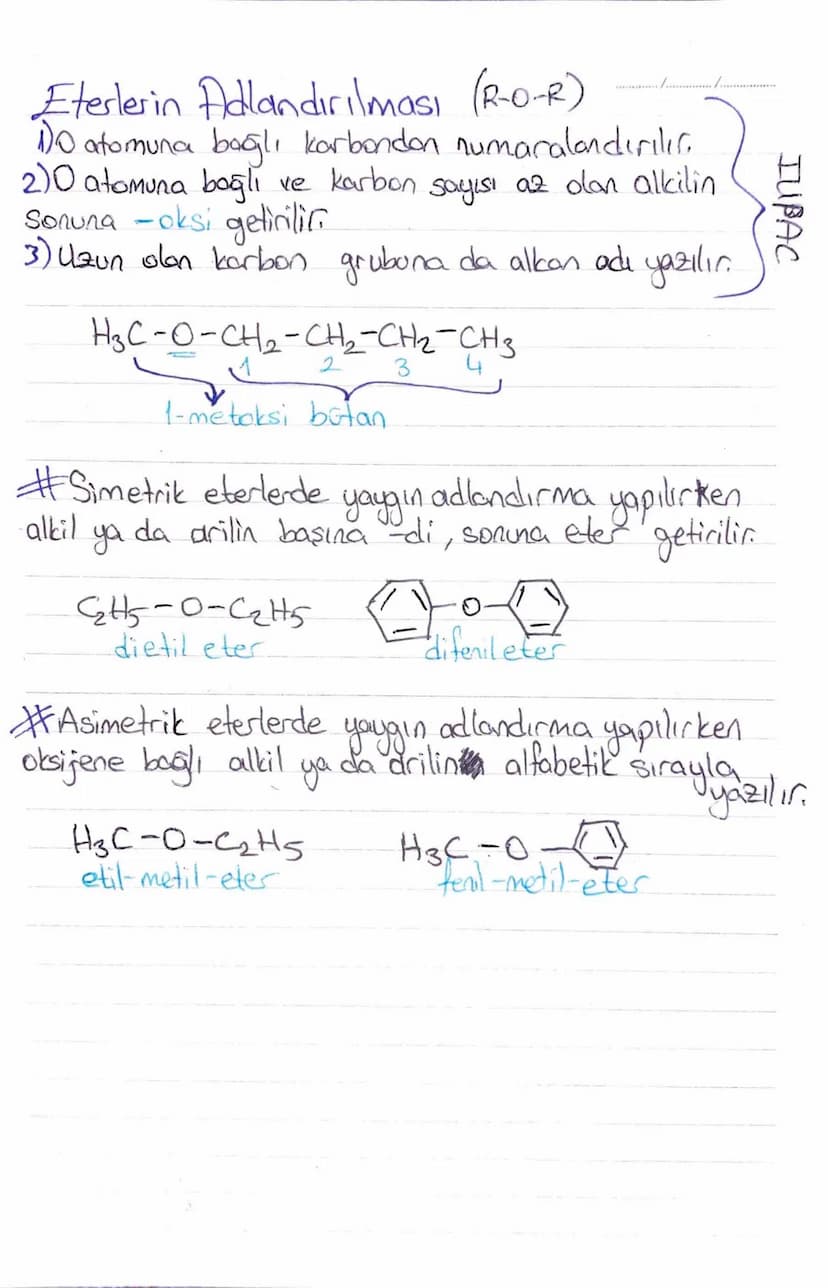 Eterlerin Adlandırılması (R-O-R) ....../....../......
1) O atomuna bağlı karbondan numaralandırılır.
2) O atomuna bağlı ve karbon sayısı az olan alkilin
sonuna -oksi getirilir.
3) Uzun olan karbon grubuna da alkan adı yazılır.
IUPAC
H3C-O-CH2-CH2-CH2-CH3
1 2 3 4
1-metoksi bütan
# Simetrik eterlerde yaygın adlandırma yapılırken
alkil ya da arilin başına -di, sonuna eter getirilir.
C2H5-O-C2H5 -O-
dietil eter difenileter
# Asimetrik eterlerde yaygın adlandırma yapılırken
oksijene bağlı alkil ya da arilin alfabetik sırayla
yazılır.
H3C-O-C2H5 H3C-O-
etil-metil-eter fenil-metil-eter